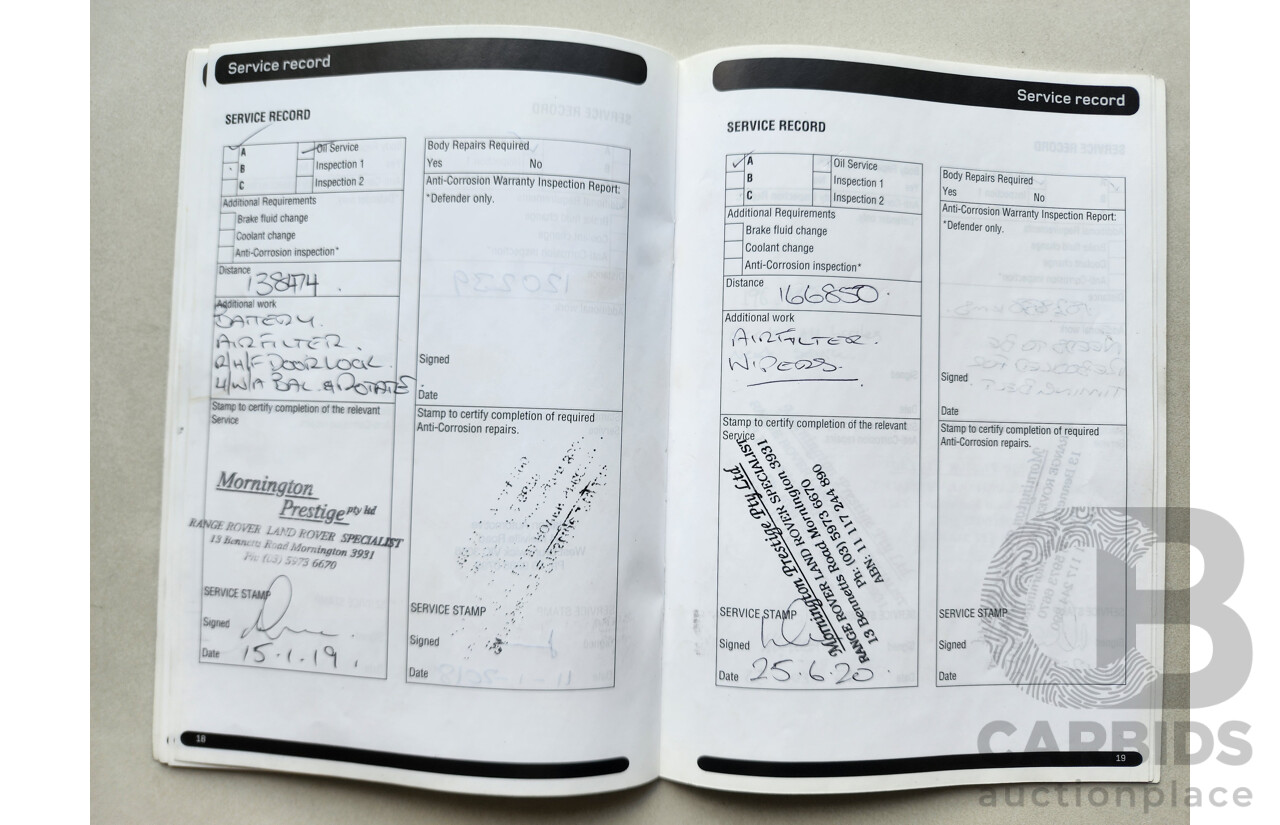 Service record
SERVICE RECORD
A
Oil Service
B
Inspection 1
C
Inspection 2
Additional Requirements
Brake fluid change
Coolant change
Anti-Corrosion inspection*
Distance
138474.
Additional work
BATTERY.
AIRFILTER.
R/H/F DOORLOCK.
4/W/A BAL & ROTATE.
Stamp to certify completion of the relevant
Service
Mornington
Prestige pty ltd
RANGE ROVER LAND ROVER SPECIALIST
13 Bennetts Road Mornington 3931
Ph: (03) 5973 6670
SERVICE STAMP
Signed
Date 15.1.19.
Body Repairs Required
Yes No
Anti-Corrosion Warranty Inspection Report:
*Defender only.
Signed
Date
Stamp to certify completion of required
Anti-Corrosion repairs.
SERVICE STAMP
Signed
Date
18
Service record
SERVICE RECORD
A
Oil Service
B
Inspection 1
C
Inspection 2
Additional Requirements
Brake fluid change
Coolant change
Anti-Corrosion inspection*
Distance
166850.
Additional work
AIRFILTER.
WIPERS.
Stamp to certify completion of the relevant
Service
Mornington Prestige Pty Ltd
RANGE ROVER LAND ROVER SPECIALIST
13 Bennetts Road Mornington 3931
Ph: (03) 5973 6670
ABN: 11 117 244 890
SERVICE STAMP
Signed
Date 25.6.20.
Body Repairs Required
Yes No
Anti-Corrosion Warranty Inspection Report:
*Defender only.
Signed
Date
Stamp to certify completion of required
Anti-Corrosion repairs.
SERVICE STAMP
Signed
Date
19
CB
CARBIDS
auctionplace